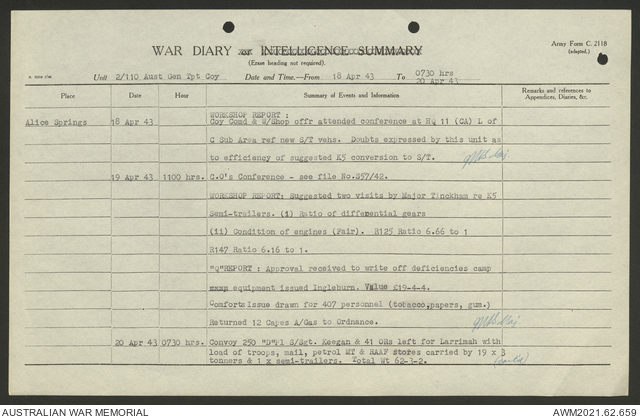 WAR DIARY or INTELLIGENCE SUMMARY
Army Form C. 2118
(adapted.)
(Erase heading not required).
Unit 2/110 Aust Gen Tpt Coy Date and Time.—From 18 Apr 43 To 0730 hrs 20 Apr 43
Place Date Hour Summary of Events and Information Remarks and references to Appendices, Diaries, &c.
WORKSHOP REPORT :
Alice Springs 18 Apr 43 Coy Comd & W/Shop offr attended conference at HQ 11 (CA) L of
C Sub Area ref new S/T vehs. Doubts expressed by this unit as
to efficiency of suggested K5 conversion to S/T.
19 Apr 43 1100 hrs. C.O's Conference - see file No.S57/42.
WORKSHOP REPORT: Suggested two visits by Major Tinckham re K5
Semi-trailers. (i) Ratio of differential gears
(ii) Condition of engines (Fair). R125 Ratio 6.66 to 1
R147 Ratio 6.16 to 1.
"Q"REPORT : Approval received to write off deficiencies camp
equipment issued Ingleburn. Value £19-4-4.
Comforts Issue drawn for 407 personnel (tobacco,papers, gum.)
Returned 12 Capes A/Gas to Ordnance.
20 Apr 43 0730 hrs. Convoy 250 "D"Pl S/Sgt. Keegan & 41 ORs left for Larrimah with
load of troops, mail, petrol MT & RAAF stores carried by 19 x 3
tonners & 1 x semi-trailers. Total Wt 62-3-2.
AUSTRALIAN WAR MEMORIAL
AWM2021.62.659